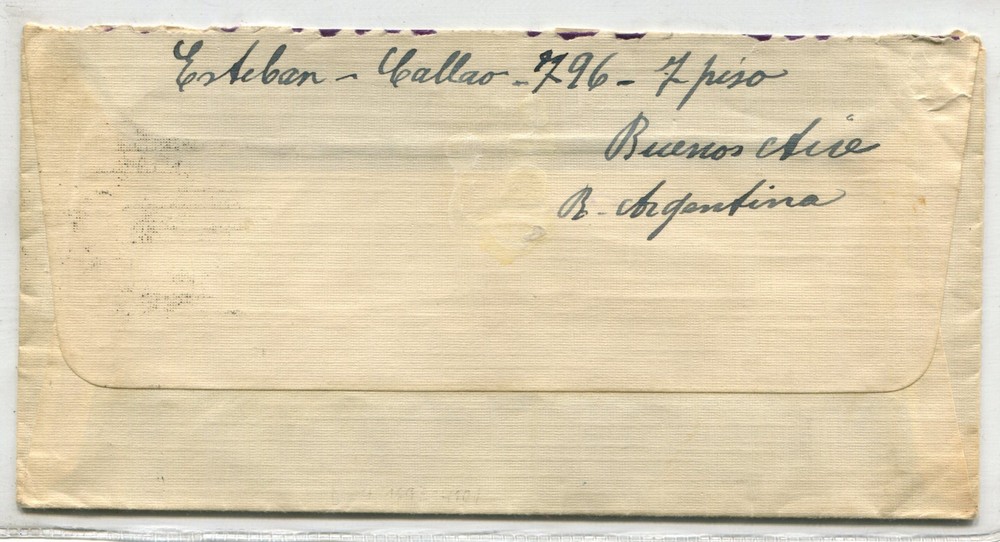 Esteban - Callao - 796 - 7 piso
Buenos Aire
R. Argentina